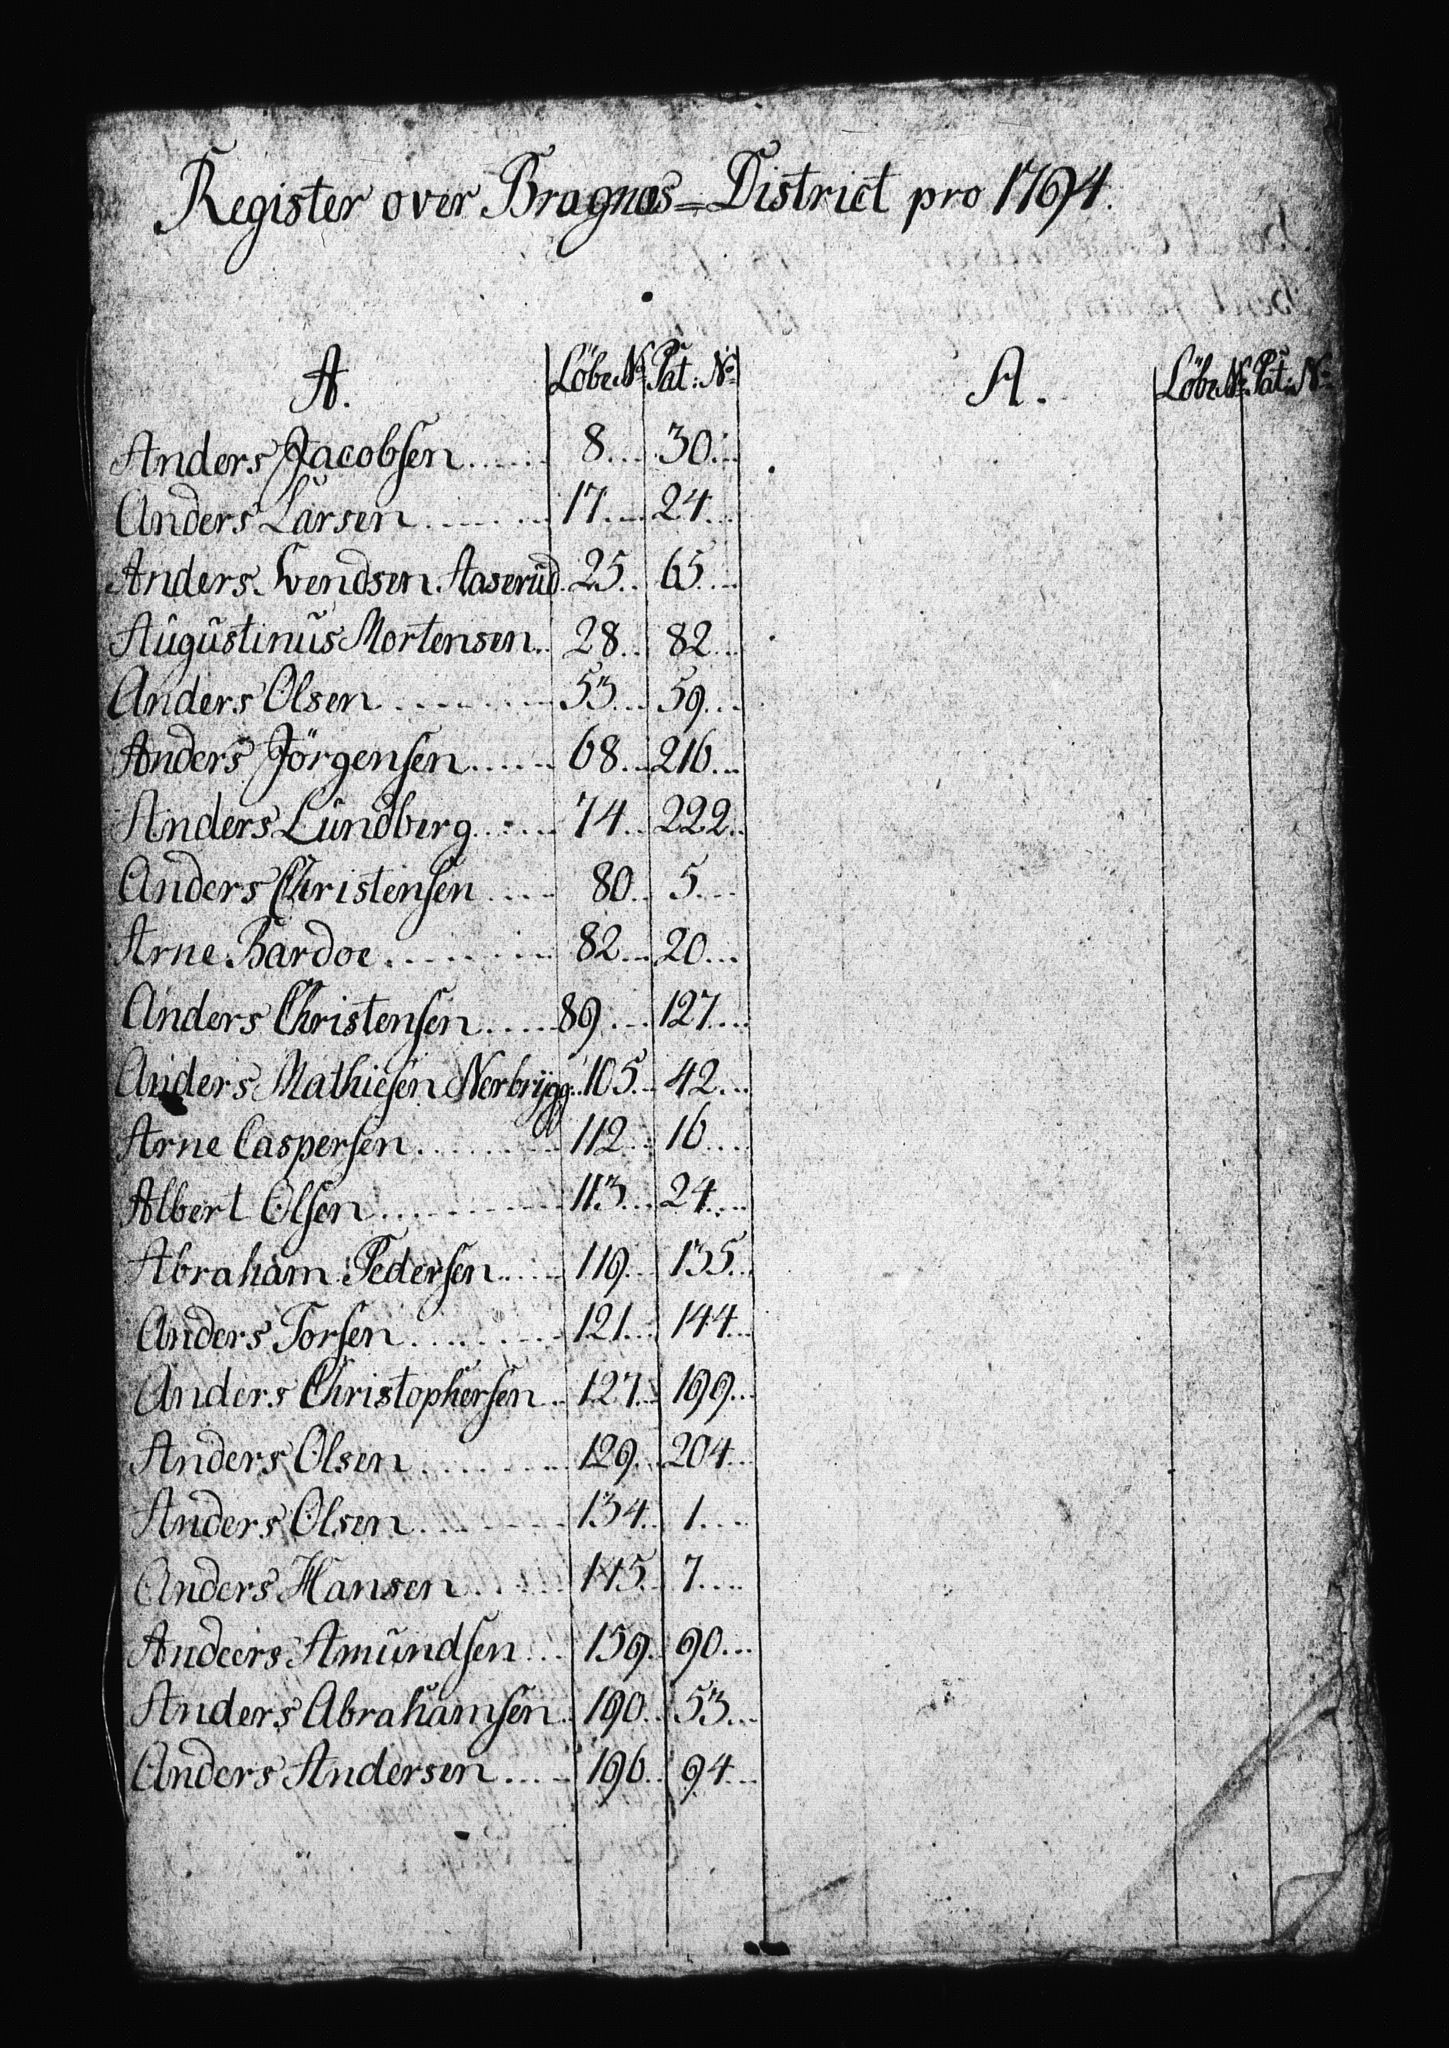 Register over Bragnæs=District pro 1794.
A. Löbe No Pat: No A. Löbe No Pat: No
Anders Jacobsen...... 8.... 30...
Anders Larsen........ 17.... 24...
Anders Svendsen Aaserud. 25.. 65...
Augustinus Mortensen.. 28... 82...
Anders Olsen........ 53... 59...
Anders Jörgensen...... 68... 216...
Anders Lundberg...... 74.. 222..
Anders Christensen.... 80.. 5...
Arne Bardoe........ 82... 20...
Anders Christensen..... 89... 127...
Anders Mathiesen Nerbrygg:.. 105.. 42...
Arne Caspersen........ 112.. 16...
Albert Olsen.......... 113... 24...
Abraham Pedersen..... 119.. 135..
Anders Torsen........ 121... 144..
Anders Christophersen.. 127.. 199...
Anders Olsen........ 129.. 204..
Anders Olsen........ 134. 1....
Anders Hansen...... 145. 7....
Andeers Amundsen... 159. 90...
Anders Abrahamsen.. 190.. 53...
Anders Andersen.... 196.. 94...